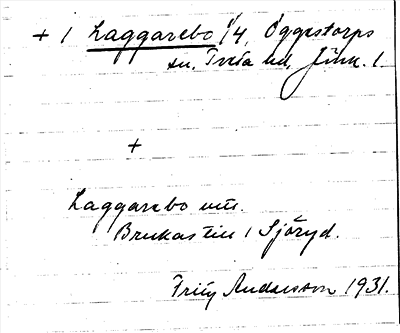 + 1 Laggarebo 1/4, Öggestorps
sn, Tveta hd, Jönk. l.
+
Laggarebo utt.
Brukas till 1 Sjöryd.
Fritz Andersson 1931.